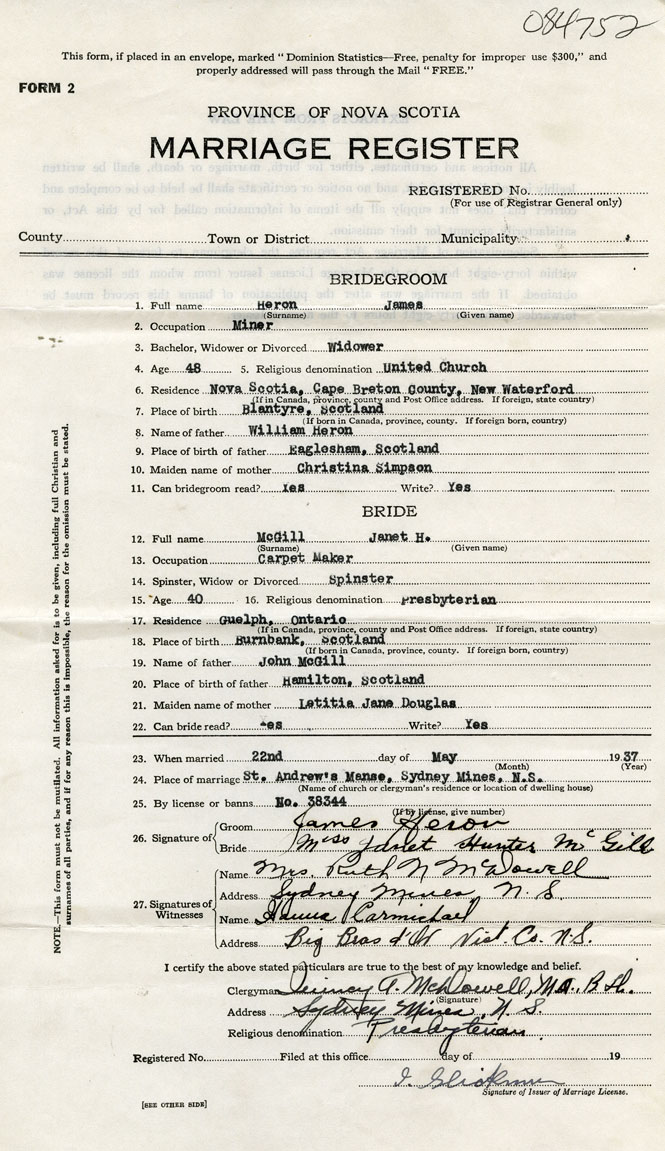 084752
This form, if placed in an envelope, marked "Dominion Statistics—Free, penalty for improper use $300," and
properly addressed will pass through the Mail "FREE."
FORM 2
PROVINCE OF NOVA SCOTIA
MARRIAGE REGISTER
REGISTERED No.
(For use of Registrar General only)
County Town or District Municipality
BRIDEGROOM
1. Full name Heron James
(Surname) (Given name)
2. Occupation Miner
3. Bachelor, Widower or Divorced Widower
4. Age 48 5. Religious denomination United Church
6. Residence Nova Scotia, Cape Breton County, New Waterford
(If in Canada, province, county and Post Office address. If foreign, state country)
7. Place of birth Blantyre, Scotland
(If born in Canada, province, county. If foreign born, country)
8. Name of father William Heron
9. Place of birth of father Eaglesham, Scotland
10. Maiden name of mother Christina Simpson
11. Can bridegroom read? Yes Write? Yes
BRIDE
12. Full name McGill Janet H.
(Surname) (Given name)
13. Occupation Carpet Maker
14. Spinster, Widow or Divorced Spinster
15. Age 40 16. Religious denomination Presbyterian
17. Residence Guelph, Ontario
(If in Canada, province, county and Post Office address. If foreign, state country)
18. Place of birth Burnbank, Scotland
(If born in Canada, province, county. If foreign born, country)
19. Name of father John McGill
20. Place of birth of father Hamilton, Scotland
21. Maiden name of mother Letitia Jane Douglas
22. Can bride read? Yes Write? Yes
23. When married 22nd day of May 1937
(Month) (Year)
24. Place of marriage St. Andrew's Manse, Sydney Mines, N.S.
(Name of church or clergyman's residence or location of dwelling house)
25. By license or banns No. 38344
(If by license, give number)
26. Signature of
Groom James Heron
Bride Miss Janet Hunter McGill
27. Signatures of Witnesses
Name Mrs. Ruth N McDowell
Address Sydney Mines N.S.
Name Carmichael
Address Big Bras d'Or Vict. Co. N.S.
I certify the above stated particulars are true to the best of my knowledge and belief.
Clergyman McDowell, M.A.
(Signature)
Address Sydney Mines, N.S.
Religious denomination Presbyterian
Registered No. Filed at this office day of 19
Signature of Issuer of Marriage License.
[SEE OTHER SIDE]
NOTE.—This form must not be mutilated. All information asked for is to be given, including full Christian and
surnames of all parties, and if for any reason this is impossible, the reason for the omission must be stated.